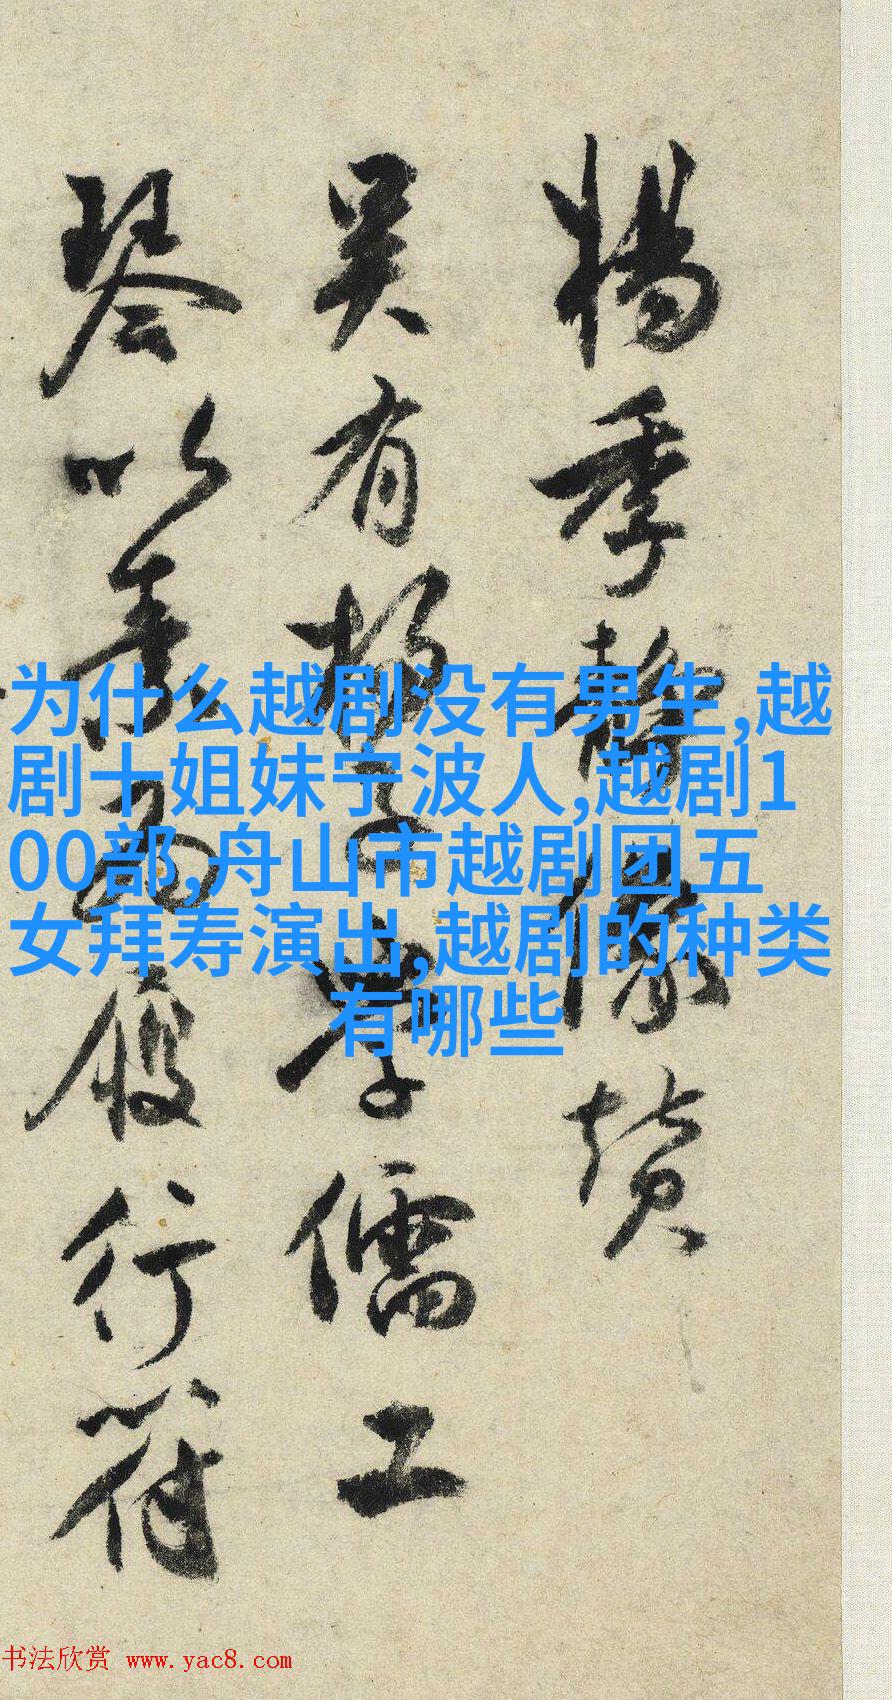 楊季靜像賛
吴有楊子學儒工
琴以素為履行符
为什么越剧没有男生,越
剧十姐妹宁波人,越剧1
00部,舟山市越剧团五
女拜寿演出,越剧的种类
有哪些
书法欣赏 www.yac8.com